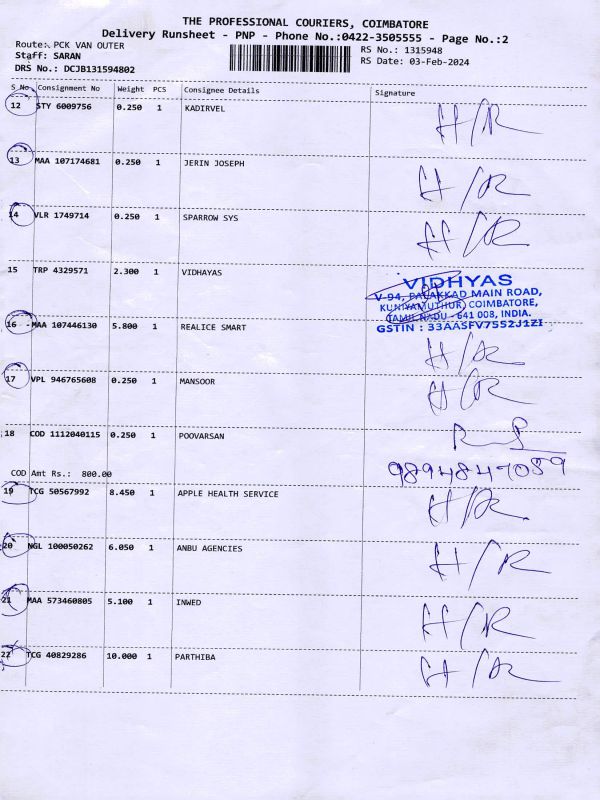 THE PROFESSIONAL COURIERS, COIMBATORE
Delivery Runsheet - PNP - Phone No.:0422-3505555 - Page No.:2
Route: PCK VAN OUTER
RS No.: 1315948
Staff: SARAN
RS Date: 03-Feb-2024
DRS No.: DCJB131594802
S No Consignment No Weight PCS Consignee Details Signature
12 STY 6009756 0.250 1 KADIRVEL H/R
13 MAA 107174681 0.250 1 JERIN JOSEPH H/R
14 VLR 1749714 0.250 1 SPARROW SYS H/R
15 TRP 4329571 2.300 1 VIDHAYAS
VIDHYAS
V-94, PALAKKAD MAIN ROAD,
KUNIYAMUTHUR, COIMBATORE,
TAMILNADU - 641 008, INDIA.
GSTIN : 33AASFV7552J1ZI
16 MAA 107446130 5.800 1 REALICE SMART H/R
17 VPL 946765608 0.250 1 MANSOOR H/R
18 COD 1112040115 0.250 1 POOVARSAN
COD Amt Rs.: 800.00
9894847059
19 TCG 50567992 8.450 1 APPLE HEALTH SERVICE H/R
20 NGL 100050262 6.050 1 ANBU AGENCIES H/R
21 MAA 573460805 5.100 1 INWED H/R
22 TCG 40829286 10.000 1 PARTHIBA H/R